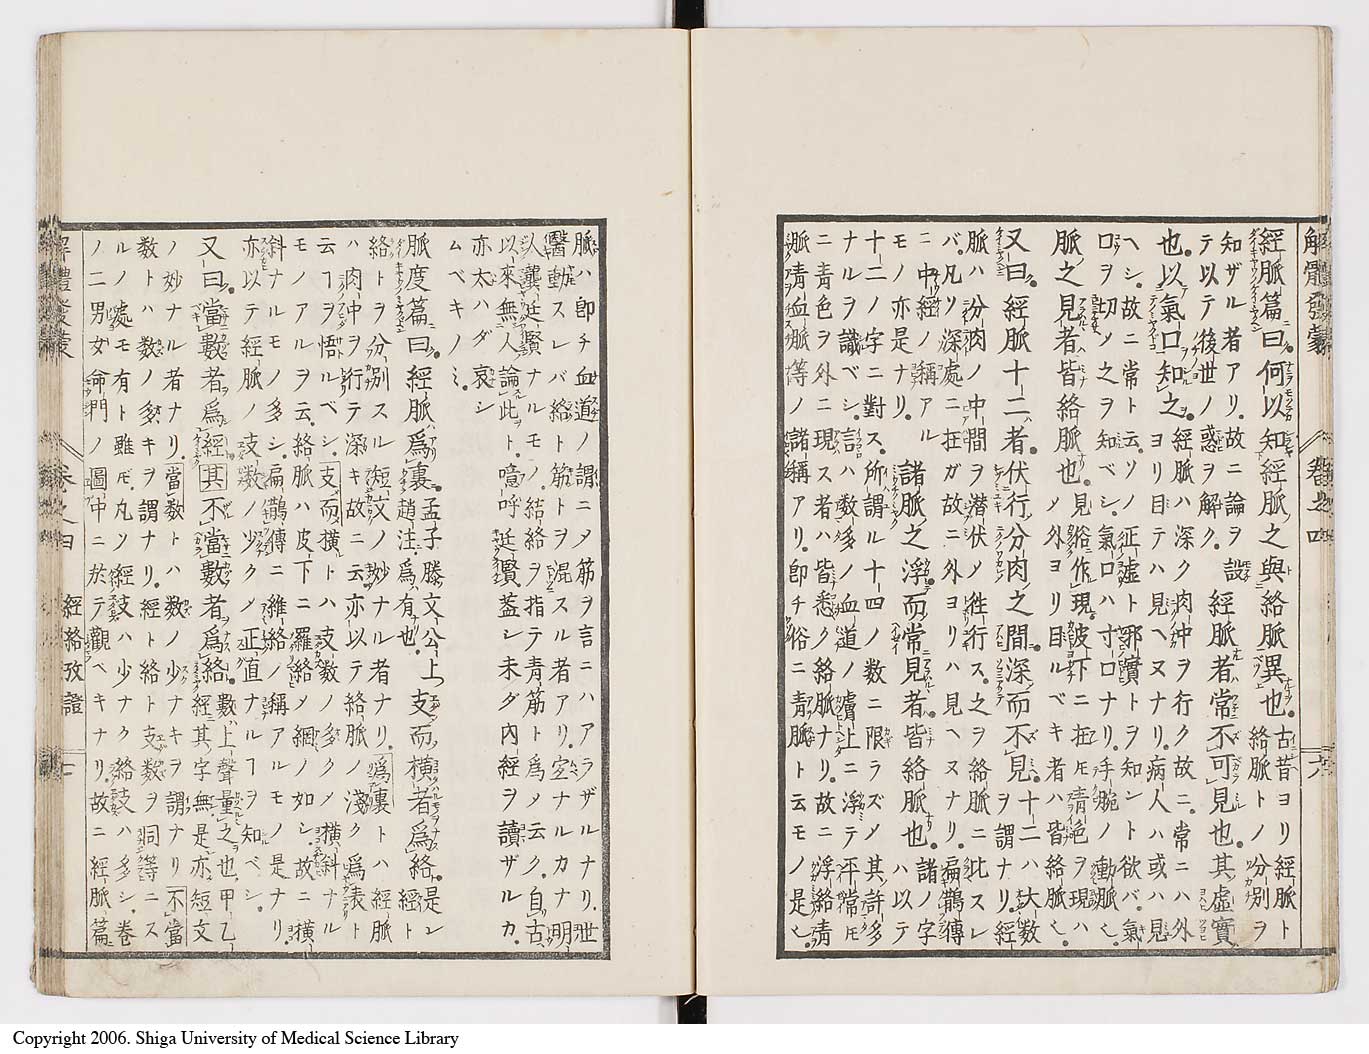 解體發蒙 卷之四 六
經脈篇曰。何以知經脈之與絡脈異也。古昔ヨリ經脈ト絡脈トノ分別ヲ
知ザル者アリ。故ニ論ヲ設テ以テ後世ノ惑ヲ解ク。經脈者常不可見也。其虛實
也。以氣口知之。經脈ハ深ク肉中ヲ行ク故ニ。常ニハ外ヨリ目テハ見ヘヌナリ。病人ハ或ハ見
ヘシ。故ニ常ト云。ソノ正虛ト邪實トヲ知ント欲バ。氣口ヲ切ノ之ヲ知ベシ。氣口ハ寸口ナリ。手腕ノ動脈也。
脈之見者皆絡脈也。見俗作現。皮下ニ在ドモ青色ヲ現ハノ外ヨリ目ルベキ者ハ皆絡脈也。
又曰。經脈十二者。伏行分肉之間。深而不見。十二ハ大數ヲ謂ナリ。經
脈ハ分肉ノ中間ヲ潛伏ノ徃行ス。之ヲ絡脈ニ比スレバ。凡ソ深處ニ在ガ故ニ外ヨリハ見ヘヌナリ。扁鵲傳
ニ中經ノ稱アルモノ亦是ナリ。諸脈之浮而常見者。皆絡脈也。諸ノ字ハ以テ
十二ノ字ニ對ス。所謂ル十四ノ数ニ限ラズメ其許多ナルヲ識ベシ。言ハ数多ノ血道ノ膚上ニ浮テ平常ドモ
ニ青色ヲ外ニ現ス者ハ皆悉ク絡脈ナリ。故ニ浮絡青脈青血脈等ノ諸稱アリ。即チ俗ニ青脈ト云モノ是也
脈ハ即チ血道ノ謂ニメ筋ヲ言ニハアラザルナリ。世醫動スレバ絡ト筋トヲ混スル者アリ。空ナルカナ明
人龔廷賢ナルモノ。結絡ヲ指テ青筋ト爲メ云ク。自古以來無人論此ト。噫呼廷賢蓋シ未ダ內經ヲ讀ザルカ。
亦太ハダ哀シムベキノミ。
脈度篇曰。經脈爲裏。孟子滕文公上趙注。爲有也。支而橫者爲絡。是レ經ト
絡トヲ分別スル短文ノ妙ナル者ナリ。爲裏トハ經脈ハ肉中ヲ行テ深キ故ニ云亦以テ絡脈ノ淺ク爲表ト
云ヿヲ悟ルベシ。支而橫トハ支数ノ多クメ橫斜ナルモノアルヲ云。絡脈ハ皮下ニ羅絡メ網ノ如シ。故ニ橫
斜ナルモノ多シ。扁鵲傳ニ維絡ノ稱アルモノ是ナリ亦以テ經脈ノ支数ノ少クメ正直ナルヿヲ知ベシ。
又曰。當數者爲經其不當數者爲絡。數上聲量之也。甲乙經其字無是亦短文
ノ妙ナル者ナリ。當数トハ数ノ少ナキヲ謂ナリ不當数トハ数ノ多キヲ謂ナリ。經ト絡ト支数ヲ同等ニス
ルノ處モ有ト雖ドモ。凡ソ經支ハ少ナク絡支ハ多シ。卷ノ二男女命門ノ圖中ニ於テ觀ベキナリ。故ニ經脈篇
解體發蒙 卷之四 經絡攷證 七
Copyright 2006. Shiga University of Medical Science Library